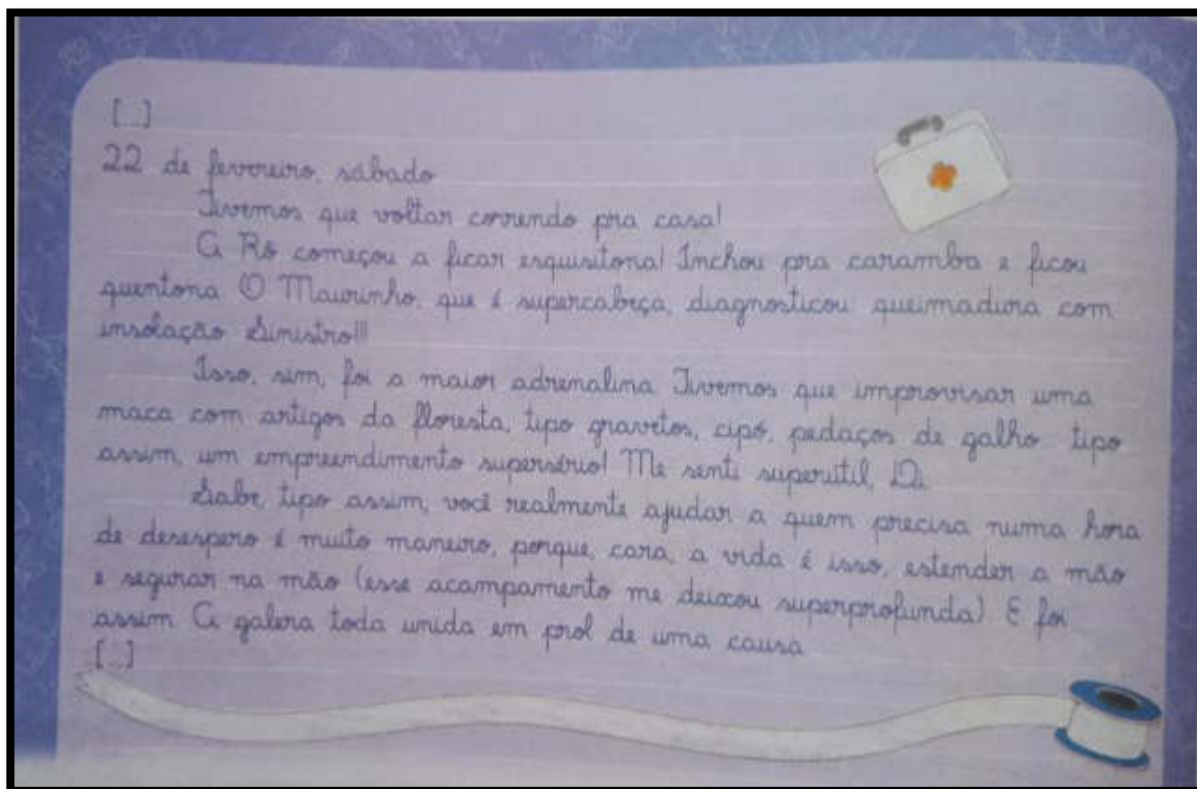 [...]
22 de fevereiro, sábado
Tivemos que voltar correndo pra casa!
A Rô começou a ficar esquisitona! Inchou pra caramba e ficou
quentona. O Maurinho, que é supercabeça, diagnosticou queimadura com
insolação. Sinistro!!!
Isso, sim, foi a maior adrenalina. Tivemos que improvisar uma
maca com artigos da floresta, tipo gravetos, cipó, pedaços de galho... tipo
assim, um empreendimento supersério! Me senti superútil, Di.
Sabe, tipo assim, você realmente ajudar a quem precisa numa hora
de desespero é muito maneiro, porque, cara, a vida é isso, estender a mão
e segurar na mão (esse acampamento me deixou superprofunda). E foi
assim. A galera toda unida em prol de uma causa.
[...]